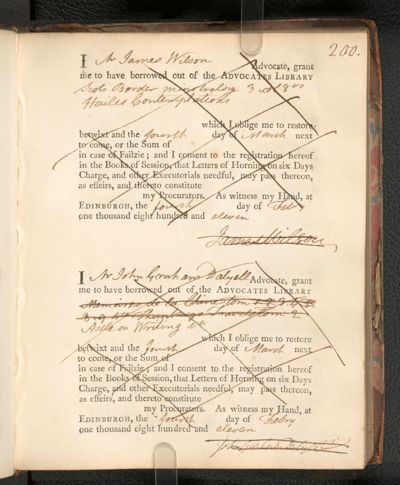 200.
I Mr James Wilson Advocate, grant
me to have borrowed out of the ADVOCATES LIBRARY
Scots Border minstrelsy 3 vol 800
Hailes
which I oblige me to restore
betwixt and the fourth day of March next
to come, or the Sum of
in case of Failzie; and I consent to the registration hereof
in the Books of Session, that Letters of Horning on six Days
Charge, and other Executorials needful, may pass thereon,
as effeirs, and thereto constitute
my Procurators. As witness my Hand, at
EDINBURGH, the fourth day of Febry
one thousand eight hundred and eleven
James Wilson
I Mr John Graham Dalyell Advocate, grant
me to have borrowed out of the ADVOCATES LIBRARY
Memoires de la Chine tom
Travels tom 2
Astle on Writing 4to
which I oblige me to restore
betwixt and the fourth day of March next
to come, or the Sum of
in case of Failzie; and I consent to the registration hereof
in the Books of Session, that Letters of Horning on six Days
Charge, and other Executorials needful, may pass thereon,
as effeirs, and thereto constitute
my Procurators. As witness my Hand, at
EDINBURGH, the fourth day of Febry
one thousand eight hundred and eleven
John Graham Dalyell